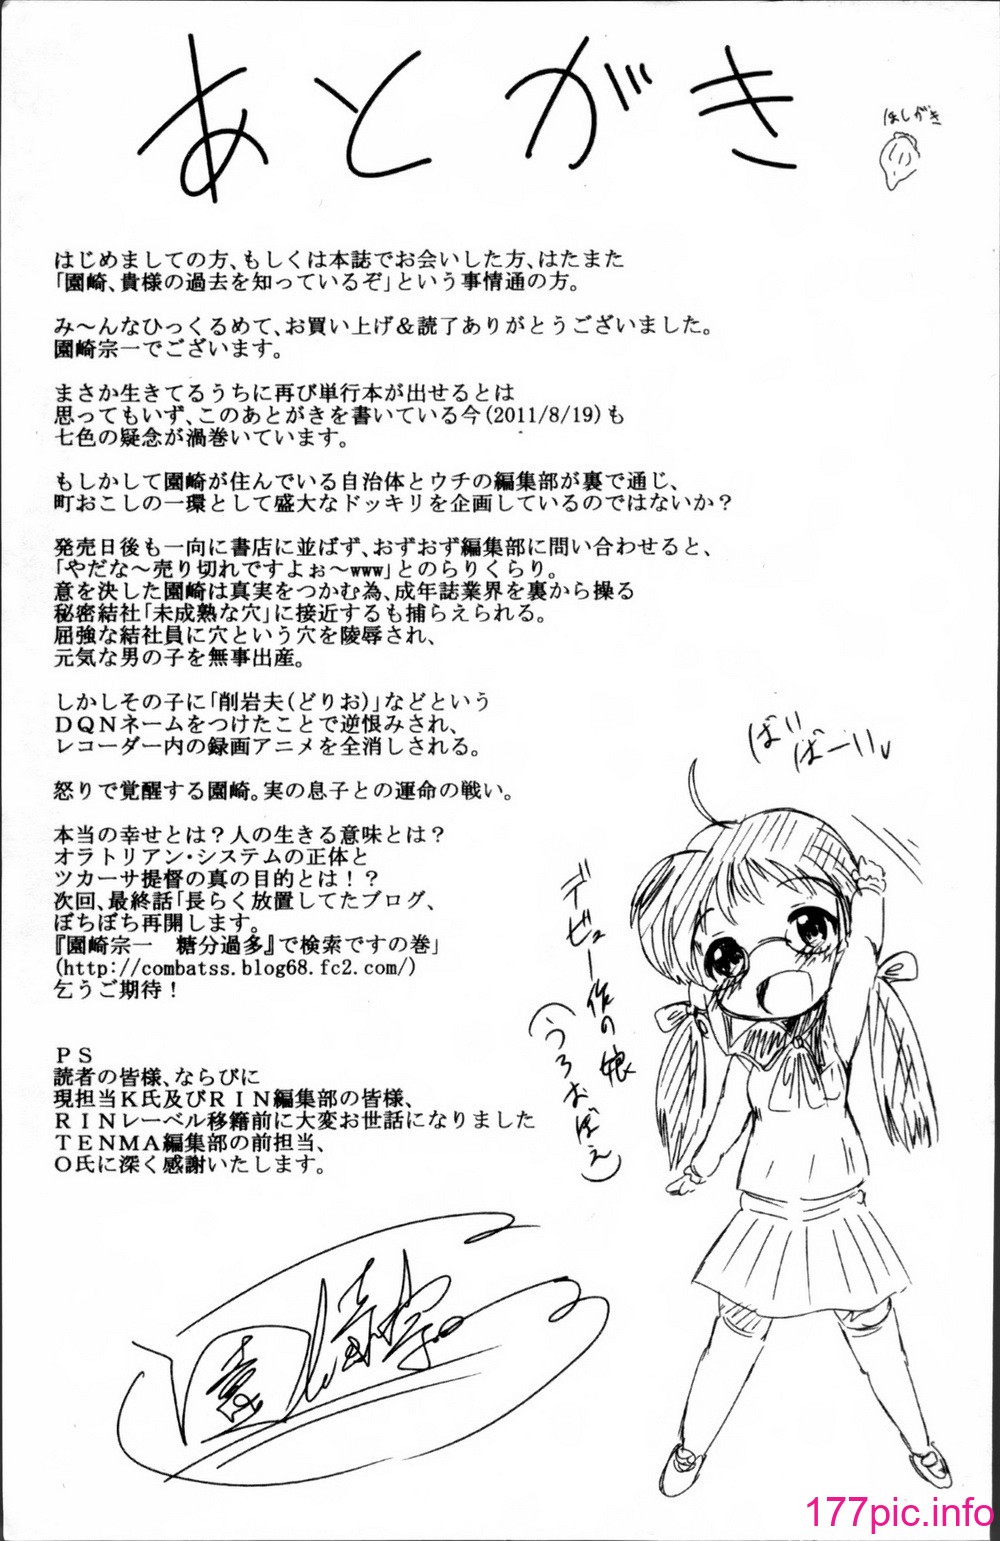 あとがき
ほしがき
はじめましての方、もしくは本誌でお会いした方、はたまた
「園崎、貴様の過去を知っているぞ」という事情通の方。
み～んなひっくるめて、お買い上げ＆読了ありがとうございました。
園崎宗一でございます。
まさか生きてるうちに再び単行本が出せるとは
思ってもいず、このあとがきを書いている今(2011/8/19)も
七色の疑念が渦巻いています。
もしかして園崎が住んでいる自治体とウチの編集部が裏で通じ、
町おこしの一環として盛大なドッキリを企画しているのではないか？
発売日後も一向に書店に並ばず、おずおず編集部に問い合わせると、
「やだな～売り切れですよぉ～www」とのらりくらり。
意を決した園崎は真実をつかむ為、成年誌業界を裏から操る
秘密結社「未成熟な穴」に接近するも捕らえられる。
屈強な結社員に穴という穴を陵辱され、
元気な男の子を無事出産。
しかしその子に「削岩夫(どりお)」などという
ＤＱＮネームをつけたことで逆恨みされ、
レコーダー内の録画アニメを全消しされる。
怒りで覚醒する園崎。実の息子との運命の戦い。
本当の幸せとは？人の生きる意味とは？
オラトリアン・システムの正体と
ツカーサ提督の真の目的とは！？
次回、最終話「長らく放置してたブログ、
ぼちぼち再開します。
『園崎宗一　糖分過多』で検索ですの巻」
(http://combatss.blog68.fc2.com/)
乞うご期待！
ＰＳ
読者の皆様、ならびに
現担当Ｋ氏及びＲＩＮ編集部の皆様、
ＲＩＮレーベル移籍前に大変お世話になりました
ＴＥＮＭＡ編集部の前担当、
Ｏ氏に深く感謝いたします。
ばい
ばーい
デビュー作の娘
(うろおぼえ)
園崎宗一
177pic.info